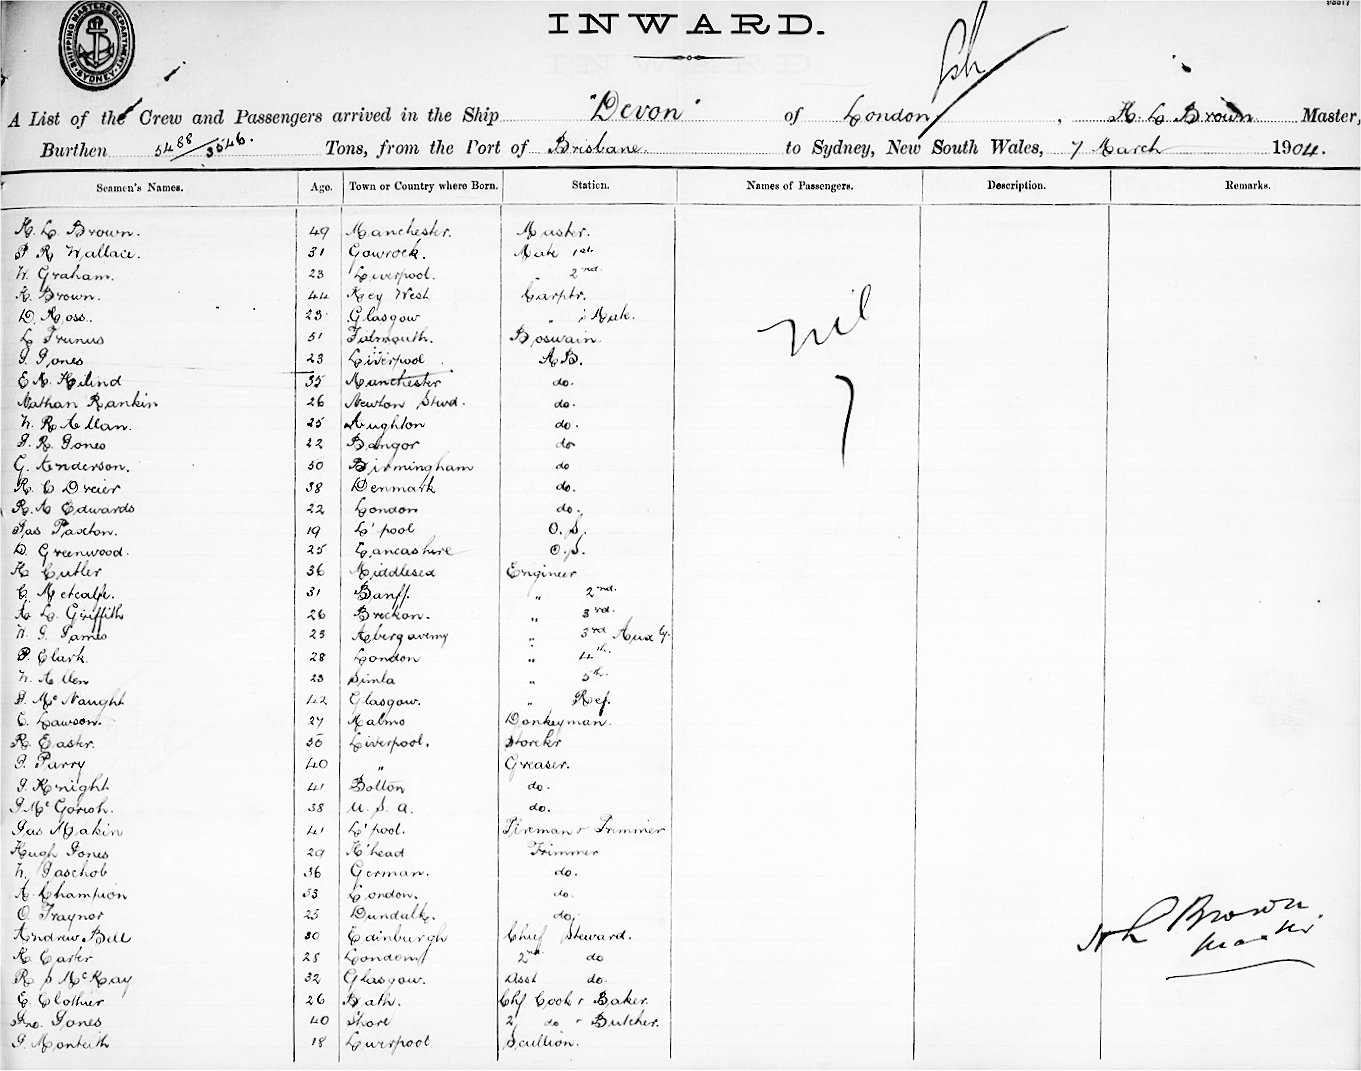 SHIPPING MASTERS DEPARTMENT SYDNEY
INWARD.
A List of the Crew and Passengers arrived in the Ship "Devon" of London, H. L. Brown Master,
Burthen 5488/3546. Tons, from the Port of Brisbane to Sydney, New South Wales, 7 March 1904.
Seamen's Names. Age. Town or Country where Born. Station. Names of Passengers. Description. Remarks.
H. L. Brown. 49 Manchester. Master.
P R Wallace. 31 Gowrock. Mate 1st
W. Graham. 23 Liverpool. " 2nd.
A. Brown. 44 Key West Carptr.
D. Ross. 23 Glasgow " : Mate.
nil
L Trunus 51 Falmouth. Boswain.
J. Jones 23 Liverpool A.B.
E. A. Hilind 35 Manchester do.
Nathan Rankin 26 Newton Stwd. do.
W. R Allan. 25 Aughton do.
J. R. Jones 22 Bangor do
G. Anderson. 30 Birmingham do
R. C Dreier 38 Denmark do.
R. A Edwards 22 London do.
Jas Paxton. 19 L'pool O. S.
D. Greenwood. 25 Lancashire O. S.
H Cutler 36 Middlesex Engineer
C. Metcalfe. 31 Banff. " 2nd.
A. L. Griffith 26 Breckon. " 3rd.
W. J. James 23 Abergavemy " 3rd Aux y.
P. Clark. 28 London " 4th.
W. Allen 23 Simla " 5th.
J. McNaught 42 Glasgow. " Ref.
C. Lawson. 27 Malmo Donkeyman.
R. Easter. 30 Liverpool. Storekr
J. Parry 40 " Greaser.
J. Knight 41 Bolton do.
J. McGorish. 38 U. S. A. do.
Jas Makin 41 L'pool. Fireman & Trimmer
Hugh Jones 29 H'head Trimmer
W. Jaschob 36 German. do.
A. Champion 33 London. do.
O. Traynor 25 Dundulk. do.
Andrew Bell 30 Edinburgh Chief Steward.
H L Brown
Master
H. Carter 28 London 2nd do
R S McKay 32 Glasgow. Asst do.
E. Clothier 26 Bath. Chf Cook & Baker.
Jno. Jones 40 Shore 2, do & Butcher.
J. Monteith 18 Liverpool Scullion.